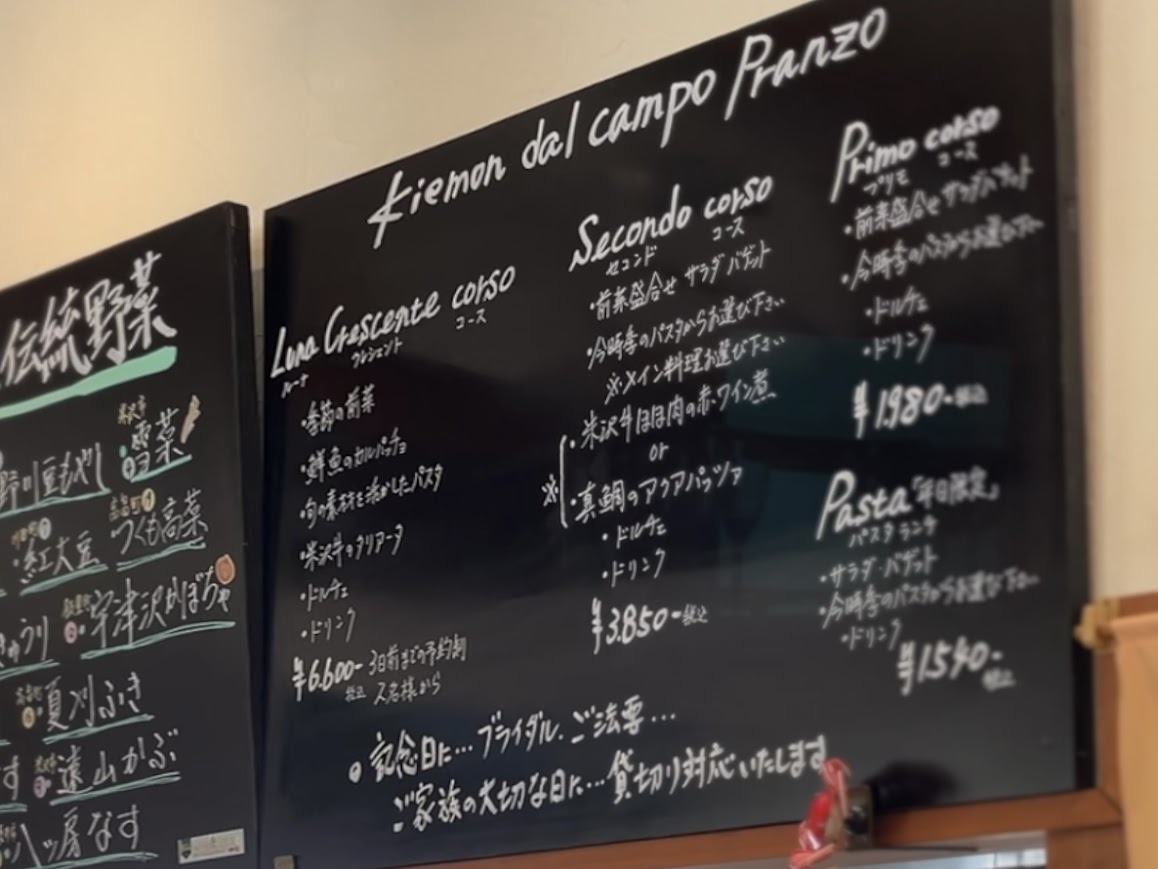 伝統野菜
米沢市
雪菜
野川豆もやし
高畠町
つくも高菜
紅大豆
宇津沢かぼちゃ
きゅうり
夏刈ふき
遠山かぶ
す
八ッ房なす
Kiemon dal campo Pranzo
Luna Crescente corso
ルーナ クレシェント コース
・季節の前菜
・鮮魚のカルパッチョ
・旬の素材を活かしたパスタ
・米沢牛のタリアータ
・ドルチェ
・ドリンク
¥6.600- 税込
3日前までの予約制
2名様から
Secondo corso
セコンド コース
・前菜盛合せ サラダ バゲット
・今時季のパスタからお選び下さい
※メイン料理お選び下さい
※
・米沢牛ほほ肉の赤ワイン煮
or
・真鯛のアクアパッツァ
・ドルチェ
・ドリンク
¥3.850-税込
Primo corso
プリモ コース
・前菜盛合せ サラダ バゲット
・今時季のパスタからお選び下さい
・ドルチェ
・ドリンク
¥1.980-税込
Pasta「平日限定」
パスタ ランチ
・サラダ・バゲット
・今時季のパスタからお選び下さい
・ドリンク
¥1540-税込
記念日に…ブライダル、ご法要…
ご家族の大切な日に…貸切り対応いたします